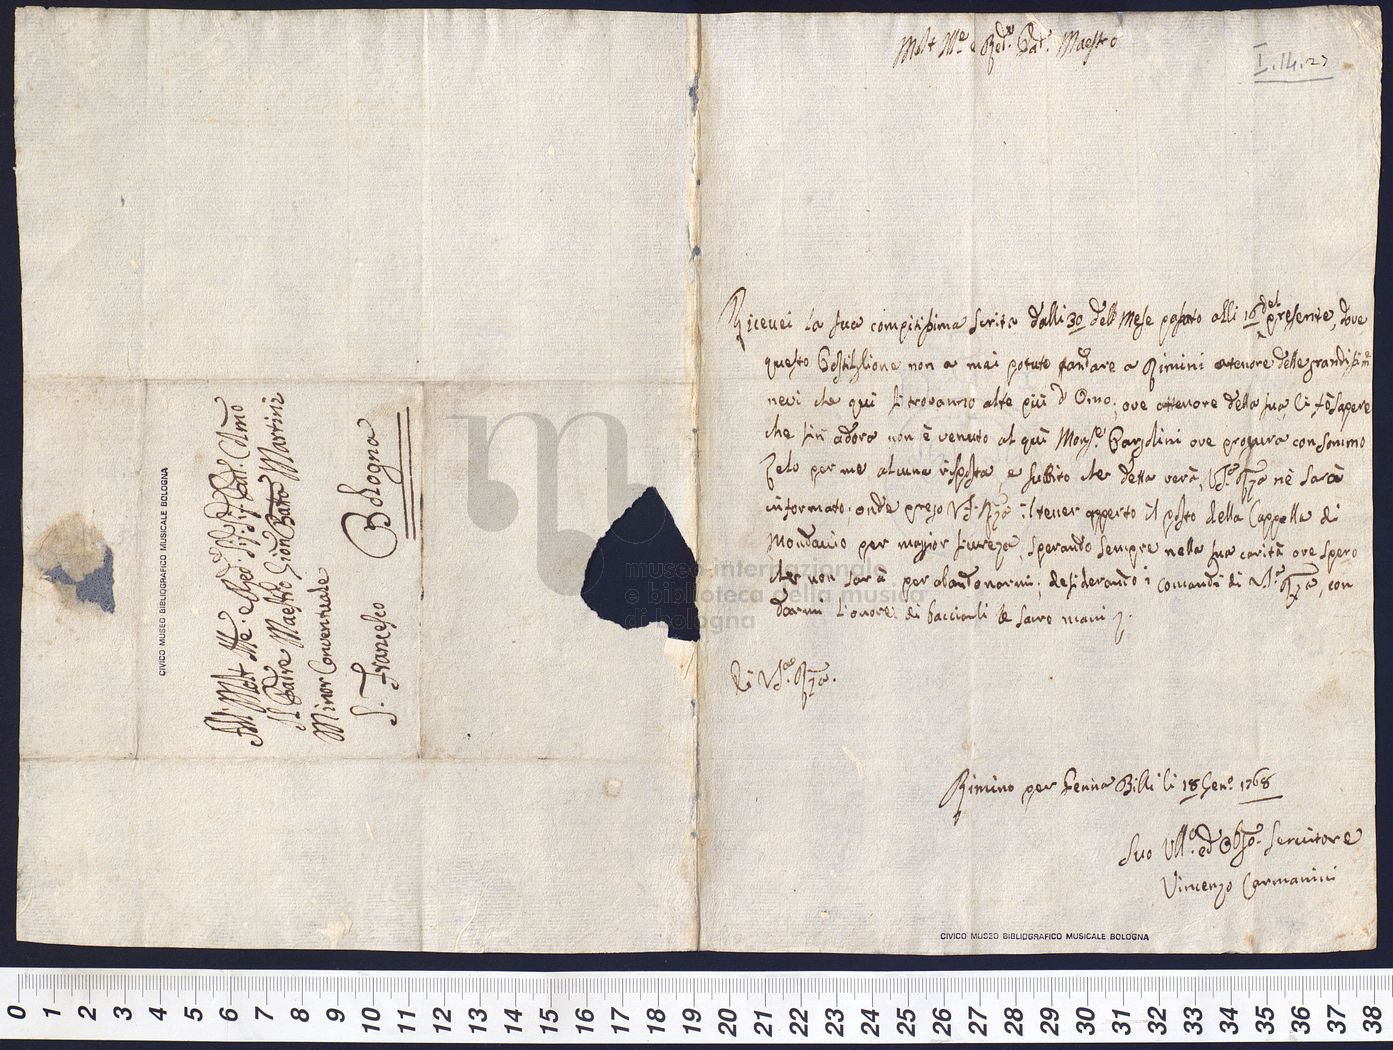 Molt Ill.e e Rev.do Pad.e Maestro
I.14.27
Ricevei la sua compitissima scrita dalli 30 dell Mese passato alli 16 del presente, dove
questo Postiglione non a mai potuto andare a Rimini attenore delle grandissime
nevi che qui si trovanno alte più d'Omo; ove attenore della sua li fò sapere
che sin adora non è venuto al qui Mons.e Barzolini ove procura con sommo
Zelo per me alcuna risposta, e subbito che detta verà, V.S.a R.za nè sarà
informato, onde prego V.S. R.za il tener apperto il posto della Cappella di
Mondavio per maggior sicureza, sperando sempre nella sua carità ove spero
che non sarà per abandonarmi; desiderando i comandi di V.S.a R.za, con
darmi l'onore di bacciarli le sacro mani
Di V.S.a R.za.
Rimino per Penna Billi li 18 Gen.o 1768
Suo Um.o ed Ob.mo Servitore
Vincenzo Carmanini
All Molt Ill.e e Rev.do Pad.e
Il Padre Maestro Gion Batta Martini
Minor Conventuale
S. Francesco Bologna
CIVICO MUSEO BIBLIOGRAFICO MUSICALE BOLOGNA
CIVICO MUSEO BIBLIOGRAFICO MUSICALE BOLOGNA
m
museo internazionale
e biblioteca della musica
di bologna
0 1 2 3 4 5 6 7 8 9 10 11 12 13 14 15 16 17 18 19 20 21 22 23 24 25 26 27 28 29 30 31 32 33 34 35 36 37 38